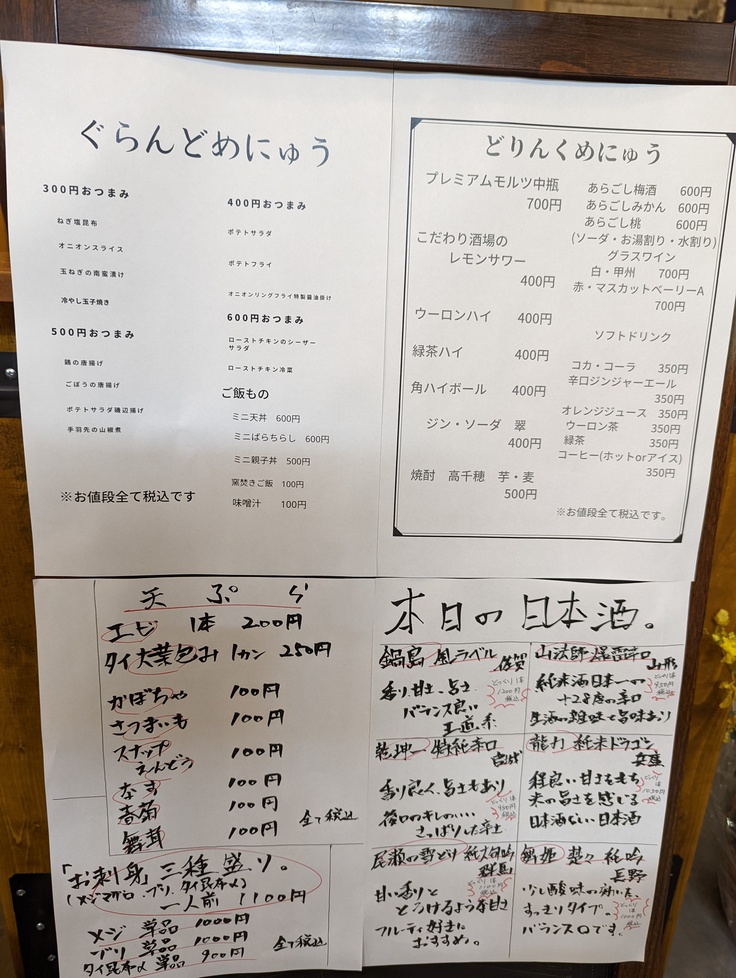 ぐらんどめにゅう
300円おつまみ
ねぎ塩昆布
オニオンスライス
玉ねぎの南蛮漬け
冷やし玉子焼き
500円おつまみ
鶏の唐揚げ
ごぼうの唐揚げ
ポテトサラダ磯辺揚げ
手羽先の山椒煮
※お値段全て税込です
400円おつまみ
ポテトサラダ
ポテトフライ
オニオンリングフライ特製醤油掛け
600円おつまみ
ローストチキンのシーザー
サラダ
ローストチキン冷菜
ご飯もの
ミニ天丼 600円
ミニばらちらし 600円
ミニ親子丼 500円
窯焚きご飯 100円
味噌汁 100円
どりんくめにゅう
プレミアムモルツ中瓶
700円
こだわり酒場の
レモンサワー
400円
ウーロンハイ 400円
緑茶ハイ 400円
角ハイボール 400円
ジン・ソーダ 翠
400円
焼酎 高千穂 芋・麦
500円
あらごし梅酒 600円
あらごしみかん 600円
あらごし桃 600円
(ソーダ・お湯割り・水割り)
グラスワイン
白・甲州 700円
赤・マスカットベーリーA
700円
ソフトドリンク
コカ・コーラ 350円
辛口ジンジャーエール
350円
オレンジジュース 350円
ウーロン茶 350円
緑茶 350円
コーヒー(ホットorアイス)
350円
※お値段全て税込です。
天ぷら
エビ 1本 200円
タイ大葉包み 1カン 250円
かぼちゃ 100円
さつまいも 100円
スナップ
えんどう 100円
なす 100円
春菊 100円
舞茸 100円
全て税込
「お刺身」三種盛り。
(メジマグロ、ブリ、タイ昆布〆)
一人前 1100円
メジ 単品 1000円
ブリ 単品 1000円
タイ昆布〆 単品 900円
全て税込
本日の日本酒。
鍋島 風ラベル 佐賀
香り、甘土、旨土、
バランス良い
王道系
とっくり1本
1200円
税込
山法師 爆雷辛口
山形
純米酒日本一の
+28度の辛口
生酒の雑味と旨味あり
とっくり1本
950円
税込
乾坤一 特純辛口
宮城
香り良く、旨土もあり
後口のキレのいい
さっぱりした辛土
とっくり1本
950円
税込
龍力 純米ドラゴン
兵庫
程良い甘さをもち
米の旨さを感じる
日本酒らしい日本酒
とっくり
1本
1050円
税込
尾瀬の雪どけ 純大吟醸
群馬
甘い香りと
とろけるような甘さ
フルーティ好きに
おすすめ。
とっくり1本
1100円
税込
舞姫 楚々 純吟
長野
少し酸味の効いた、
すっきりタイプ。
バランス◎です。
とっくり
1本
1000円
税込